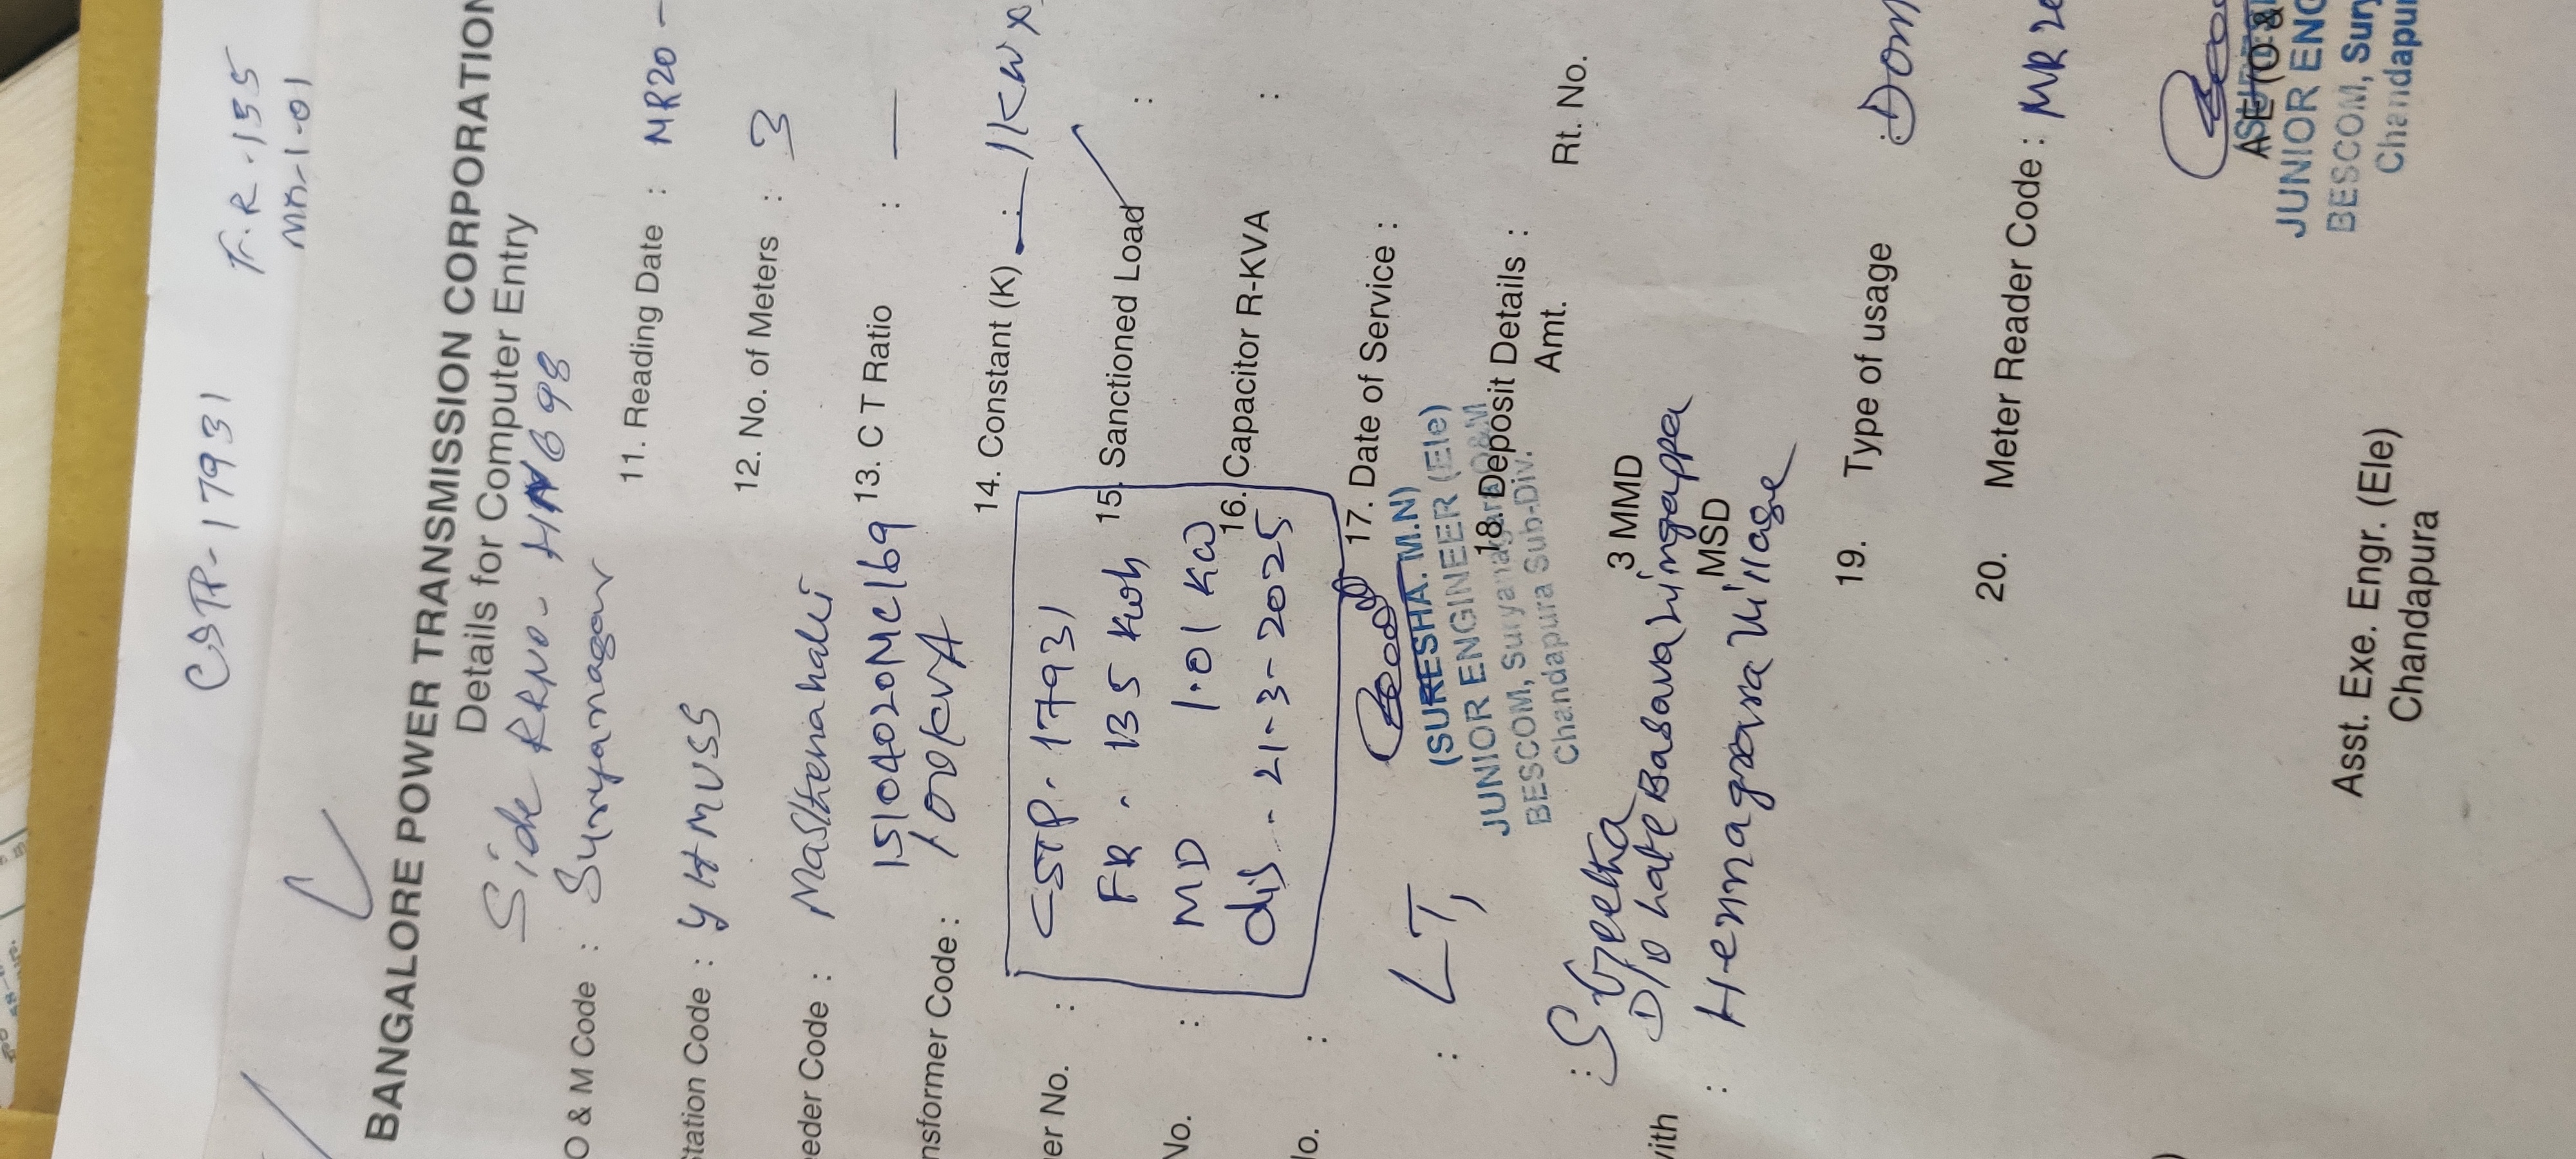 CSTP-17931
F.R-155
MD-1-01
BANGALORE POWER TRANSMISSION CORPORATION
Details for Computer Entry
Side RRNo- HNG98
O & M Code : Suryanagar
11. Reading Date : MR20 -
tation Code : YHMUSS
12. No. of Meters : 3
eder Code : Masthenahalli
13. C T Ratio : —
nsformer Code : 15104020MC169
100KVA
14. Constant (K) : 1KWx
er No. :
CSTP- 17931
15. Sanctioned Load :
FR - 135 Kwh
No. :
MD 1.01 KW
16. Capacitor R-KVA :
dis - 21-3-2025
o. :
17. Date of Service :
(SURESHA. M.N)
JUNIOR ENGINEER (Ele)
BESCOM, Suryanagara O&M
Chandapura Sub-Div.
: LT,
18. Deposit Details :
Amt. Rt. No.
: S Geetha
3 MMD
D/o Late Basavalingappa
ith
MSD
: Hennagara Village
19. Type of usage : Dom
20. Meter Reader Code : MR20
AE (O &
JUNIOR ENG
BESCOM, Sury
Chandapur
Asst. Exe. Engr. (Ele)
Chandapura